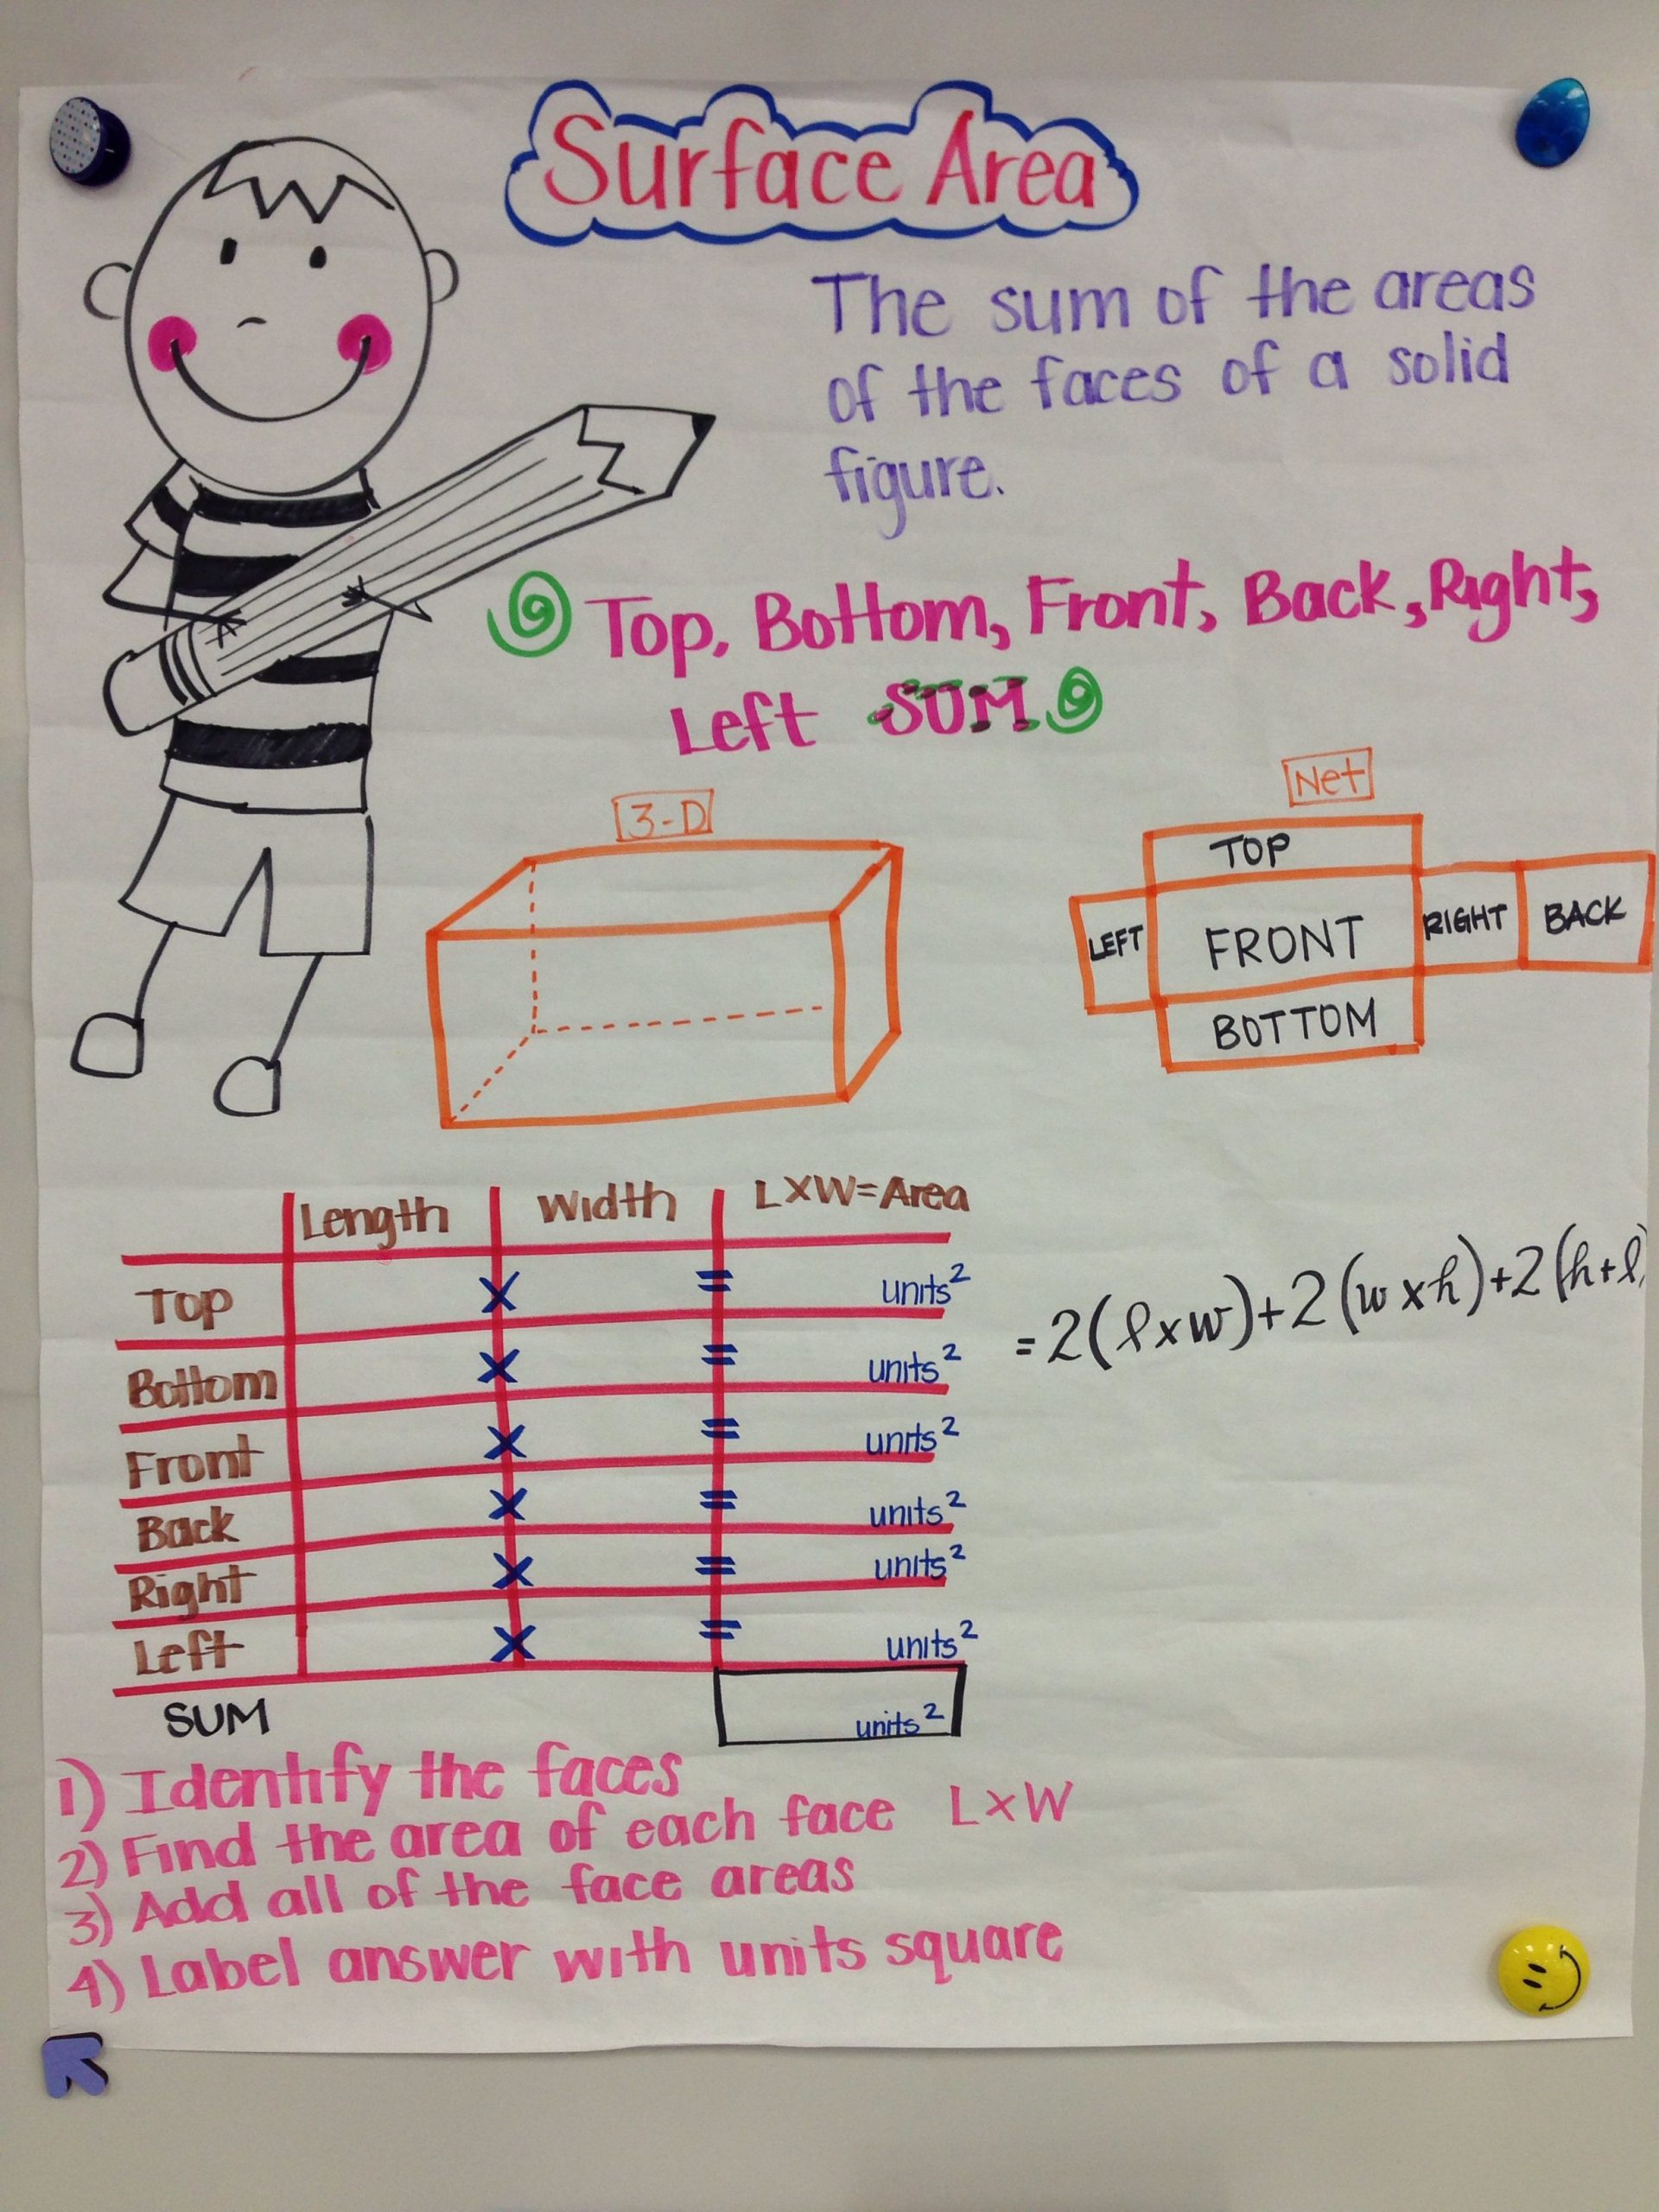 Surface Area
The sum of the areas
of the faces of a solid
figure.
Top, Bottom, Front, Back, Right,
Left SUM
3-D
Net
TOP
LEFT FRONT RIGHT BACK
BOTTOM
Length Width LXW=Area
Top × = units²
Bottom × = units²
Front × = units²
Back × = units²
Right × = units²
Left × = units²
SUM units²
= 2(l×w)+2(w×h)+2(h+l)
1) Identify the faces
2) Find the area of each face L×W
3) Add all of the face areas
4) Label answer with units square